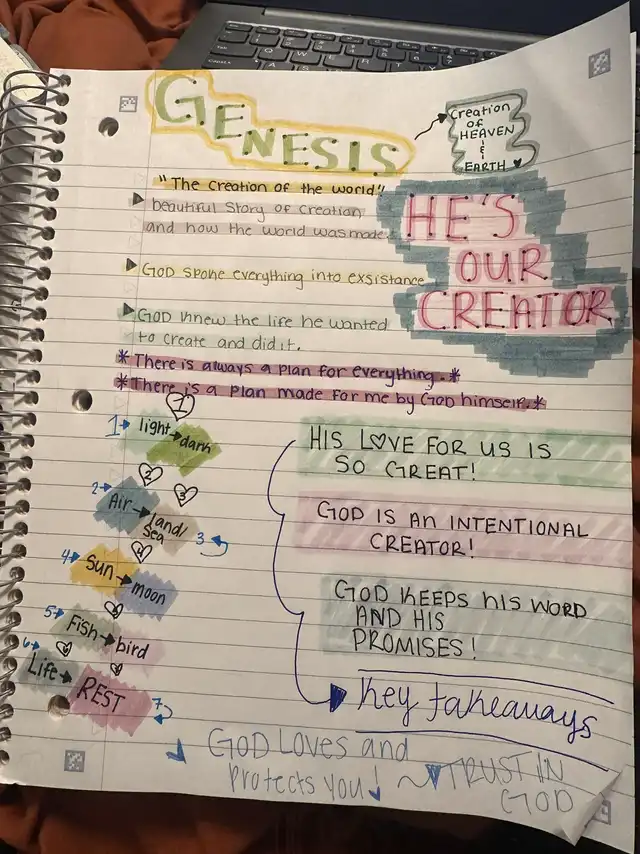 GENESIS
Creation
of
HEAVEN
&
EARTH
"The creation of the world"
beautiful story of creation
and how the world was made.
HE'S
OUR
CREATOR
GOD spoke everything into exsistance
GOD knew the life he wanted
to create and did it.
*There is always a plan for everything.*
*There is a plan made for me by GOD himself.*
1
1 light dark
2 3
2 Air Land/
Sea 3
4
4 Sun moon
5 Fish bird
6
6 Life REST 7
HIS LOVE FOR US IS
SO GREAT!
GOD IS AN INTENTIONAL
CREATOR!
GOD KEEPS HIS WORD
AND HIS
PROMISES!
Key takeaways
GOD LOVES and
Protects you!
TRUST IN
GOD